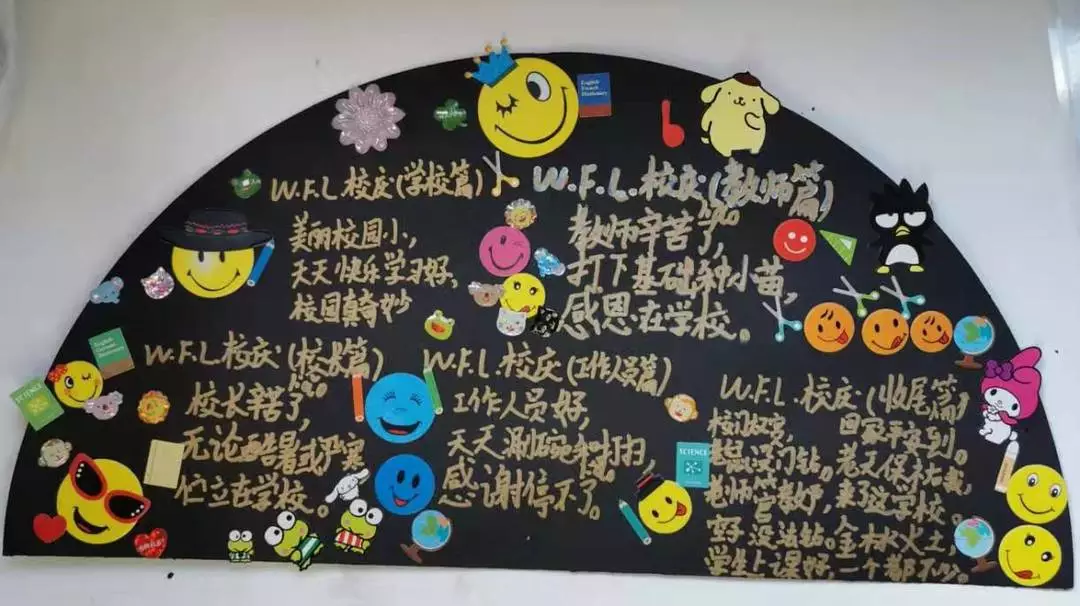 W.F.L.校庆(学校篇)
美丽校园小,
天天快乐学习好,
校园真奇妙
W.F.L.校庆(教师篇)
教师辛苦了,
打下基础种小苗,
感恩在学校。
W.F.L.校庆(校长篇)
校长辛苦了,
无论酷暑或严寒
伫立在学校。
W.F.L.校庆(工作人员篇)
工作人员好,
天天涮碗和打扫
感谢停不了。
W.F.L.校庆(收尾篇)
回家平安到。
没门钻。若天保祐我,
老师管教好,来了这学校。
没法钻。金木水火土,
学生上课好,一个都不少。
English
French
Dictionary
English
German
Dictionary
SCIENCE
SCIENCE